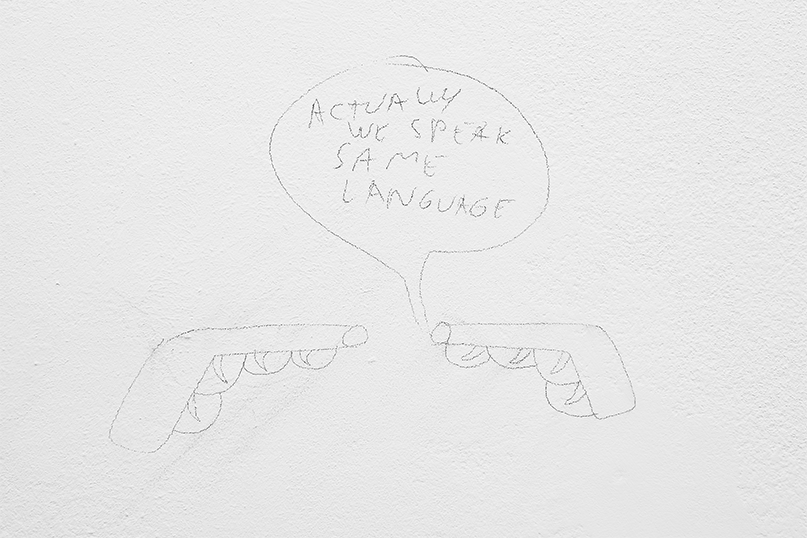 ACTUALLY
WE SPEAK
SAME
LANGUAGE